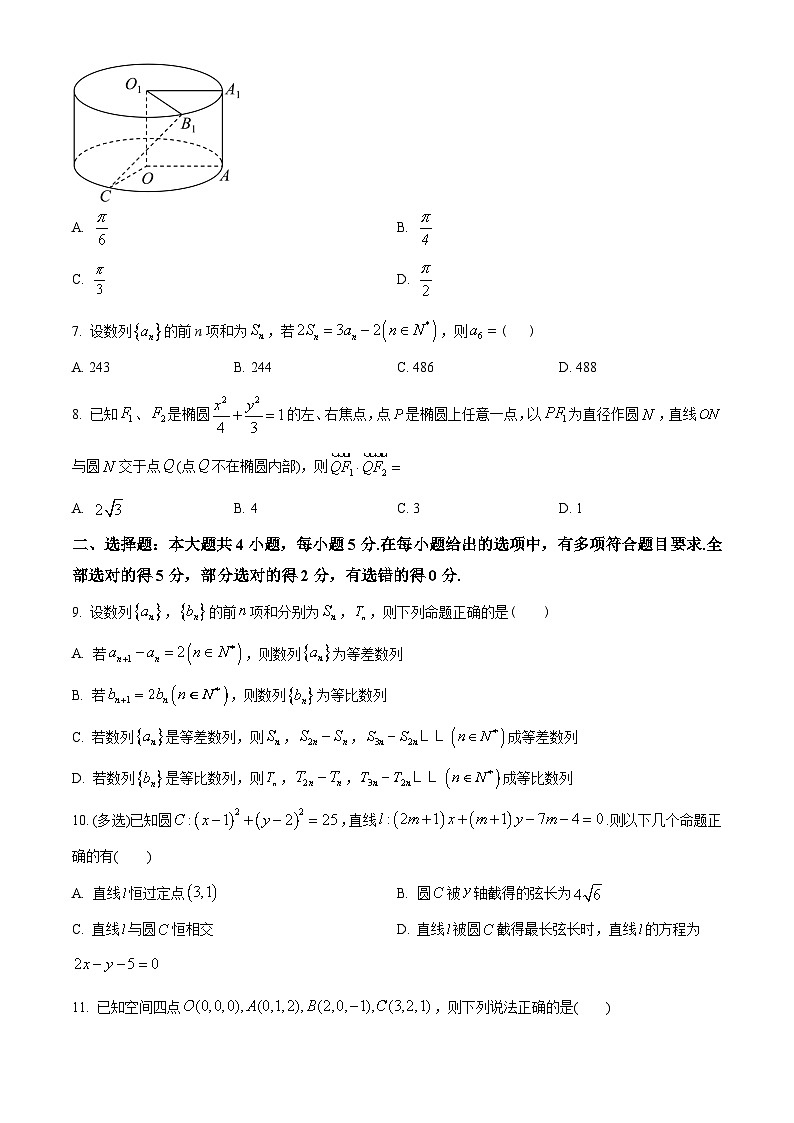 O₁ A₁
B₁
O A
C
A. π/6 B. π/4
C. π/3 D. π/2
7. 设数列{aₙ}的前n项和为Sₙ，若2Sₙ = 3aₙ − 2(n∈N*)，则a₆ = ( )
A. 243 B. 244 C. 486 D. 488
8. 已知F₁、F₂是椭圆x²/4 + y²/3 = 1的左、右焦点，点P是椭圆上任意一点，以PF₁为直径作圆N，直线ON
与圆N交于点Q(点Q不在椭圆内部)，则QF₁·QF₂ =
A. 2√3 B. 4 C. 3 D. 1
二、选择题：本大题共4小题，每小题5分.在每小题给出的选项中，有多项符合题目要求.全
部选对的得5分，部分选对的得2分，有选错的得0分.
9. 设数列{aₙ}，{bₙ}的前n项和分别为Sₙ，Tₙ，则下列命题正确的是( )
A. 若aₙ₊₁ − aₙ = 2(n∈N*)，则数列{aₙ}为等差数列
B. 若bₙ₊₁ = 2bₙ(n∈N*)，则数列{bₙ}为等比数列
C. 若数列{aₙ}是等差数列，则Sₙ，S₂ₙ − Sₙ，S₃ₙ − S₂ₙ∟∟(n∈N*)成等差数列
D. 若数列{bₙ}是等比数列，则Tₙ，T₂ₙ − Tₙ，T₃ₙ − T₂ₙ∟∟(n∈N*)成等比数列
10. (多选)已知圆C:(x−1)² + (y−2)² = 25，直线l:(2m+1)x+(m+1)y−7m−4=0.则以下几个命题正
确的有( )
A. 直线l恒过定点(3,1) B. 圆C被y轴截得的弦长为4√6
C. 直线l与圆C恒相交 D. 直线l被圆C截得最长弦长时，直线l的方程为
2x−y−5=0
11. 已知空间四点O(0,0,0),A(0,1,2),B(2,0,−1),C(3,2,1)，则下列说法正确的是( )